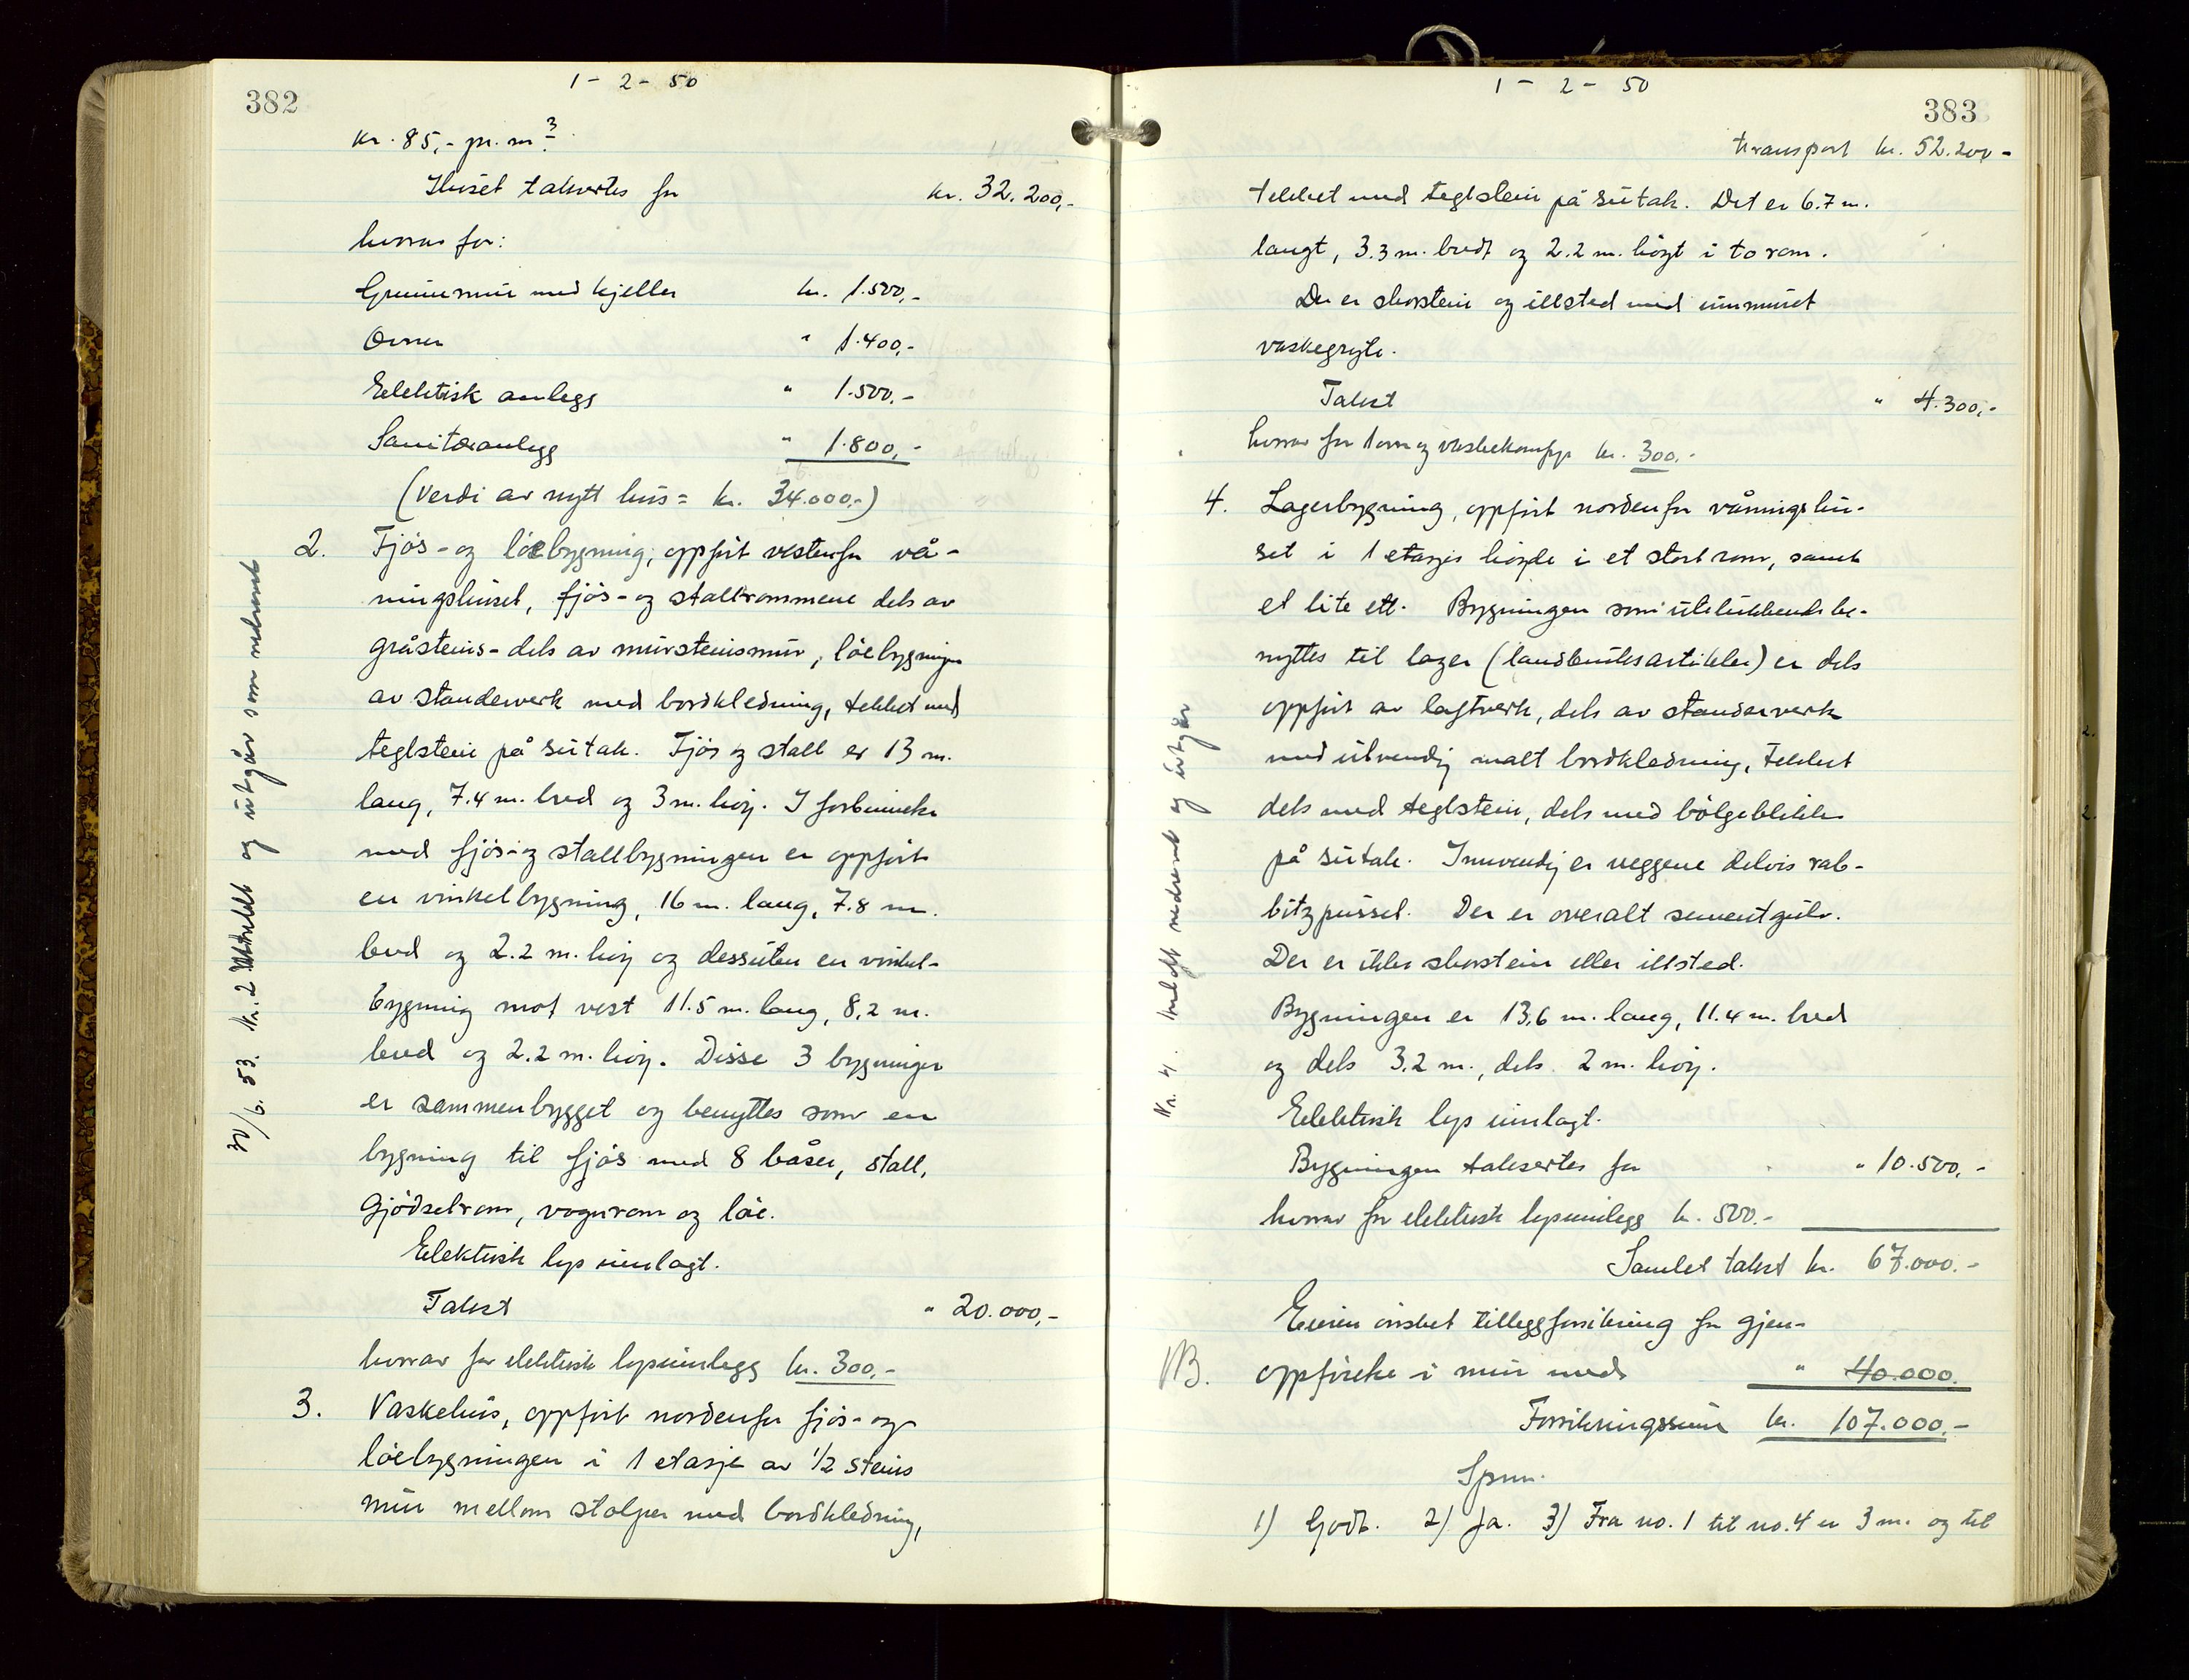 382
1 - 2 - 50
kr. 85,- pr. m³.
Huset takseres for kr. 32.200,-
hvorav for:
Grunnmur med kjeller kr. 1.500,-
Ovner " 1.400,-
Elektrisk anlegg " 1.500.-
Sanitæranlegg " 1.800,-
(Verdi av nytt hus = kr. 34.000.-)
2. Fjøs- og løebygning, oppført vestenfor vå-
ningshuset, fjøs- og stallrommene dels av
gråsteins- dels av mursteinsmur, løebygningen
av standerverk med bordkledning, tekket med
teglstein på sutak. Fjøs og stall er 13 m.
lang, 7.4 m. bred og 3 m. høy. I forbindelse
med fjøs- og stallbygningen er oppført
en vinkelbygning, 16 m. lang, 7.8 m.
bred og 2.2 m. høy og dessuten en vinkel-
bygning mot vest 11.5 m. lang, 8,2 m.
bred og 2.2 m. høy. Disse 3 bygninger
er sammenbygget og benyttes som en
bygning til fjøs med 8 båser, stall,
gjødselrom, vognrom og løe.
Elektrisk lys innlagt.
Takst " 20.000,-
hvorav for elektrisk lysinnlegg kr. 300,-
3. Vaskehus, oppført nordenfor fjøs- og
løebygningen i 1 etasje av 1/2 steins
mur mellom stolper med bordkledning,
30/6. 53. Nr. 2 og utgår som nedrevet
383
1 - 2 - 50
transport kr. 52.200 -
tekket med teglstein på sutak. Det er 6.7 m.
langt, 3.3 m. bredt og 2.2 m. høyt i to rom.
Der er skorstein og illsted med innmuret
vaskegryte.
Takst " 4.300,-
hvorav for 1 ovn og vaskekomfyr kr. 300.-
4. Lagerbygning, oppført nordenfor våningshu-
set i 1 etasjes høyde i et stort rom, samt
et lite ett. Bygningen som utelukkende be-
nyttes til lager (landbruksartikler) er dels
oppført av laftverk, dels av standerverk
med utvendig malt bordkledning, tekket
dels med teglstein, dels med bølgeblikk
på sutak. Innvendig er veggene delvis rab-
bitzpusset. Der er overalt sementgulv.
Der er ikke skorstein eller illsted.
Bygningen er 13,6 m. lang, 11.4 m. bred
og dels 3.2 m., dels 2 m. høy.
Elektrisk lys innlagt.
Bygningen takseres for " 10.500,-
hvorav for elektrisk lysinnlegg kr. 500.-
Samlet takst kr. 67.000.-
Eieren ønsket tilleggsforsikring for gjen-
NB. oppførelse i mur med " 40.000.
Forsikringssum kr. 107.000.-
Spm.
1) Godt. 2) Ja. 3) Fra no. 1 til no. 4 er 3 m. og til
Nr. 4. nedrevet og utgår